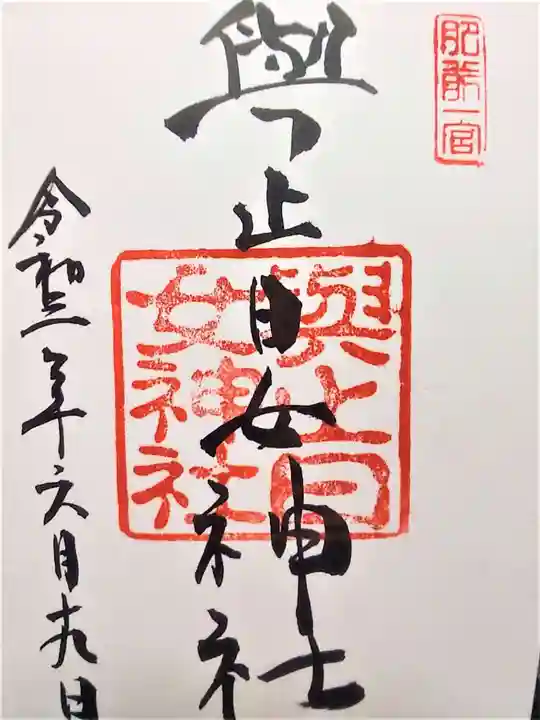 肥前一宮
與止日女神社
與止日女神社
令和二年六月九日